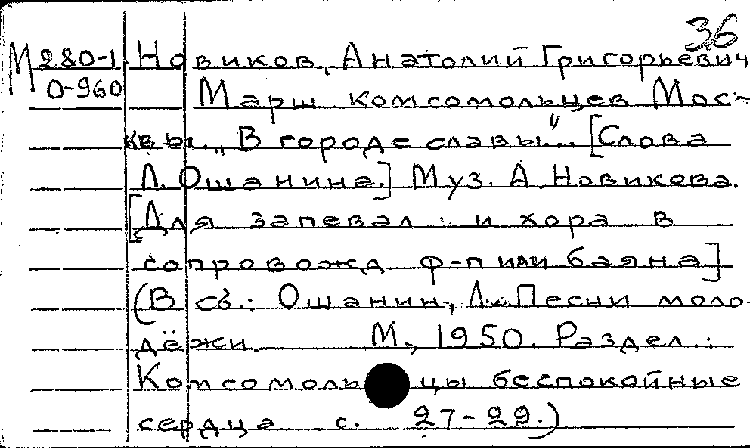 36
М 280-1 Новиков, Анатолий Григорьевич
0-960 Марш комсомольцев Мос-
квы „В городе славы". [Слова
Л. Ошанина.] Муз. А. Новикова.
[Для запевал и хора в
сопровожд. ф-п или баяна]
(В сб.: Ошанин, Л. Песни моло-
дёжи. М., 1950. Раздел:
Комсомольцы беспокойные
сердца с. 27-29.)